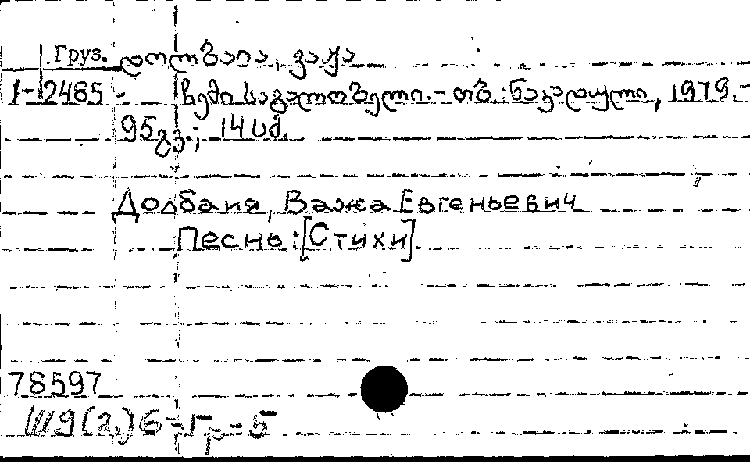 Груз. დოლბაია, ვაჟა
1-2485 - ჩემი საგალობელი. - თბ.: ნაკადული, 1979. -
95გვ.; 14 სმ.
Долбаия, Важа Евгеньевич
Песнь: [Стихи].
78597
Ш9(2)6-Гр-5